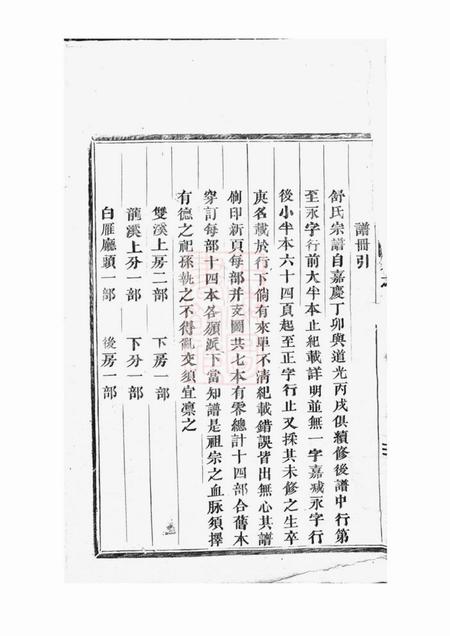 譜冊引
舒氏宗譜自嘉慶丁卯與道光丙戌俱續修後譜中行第
至永字行前大半本止紀載詳明並無一字嘉減永字行
後小半本六十四頁起至正字行止又採其未修之生卒
庚名載於行下倘有來單不清紀載錯誤皆出無心其譜
刷印新頁每部并支圖共七本有零總計十四部合舊本
穿訂每部十四本各領派下當知譜是祖宗之血脉須擇
有德之祀孫執之不得亂交須宜凜之
雙溪上房二部 下房一部
龍溪上分一部 下分一部
白雁廳頭一部 後房一部